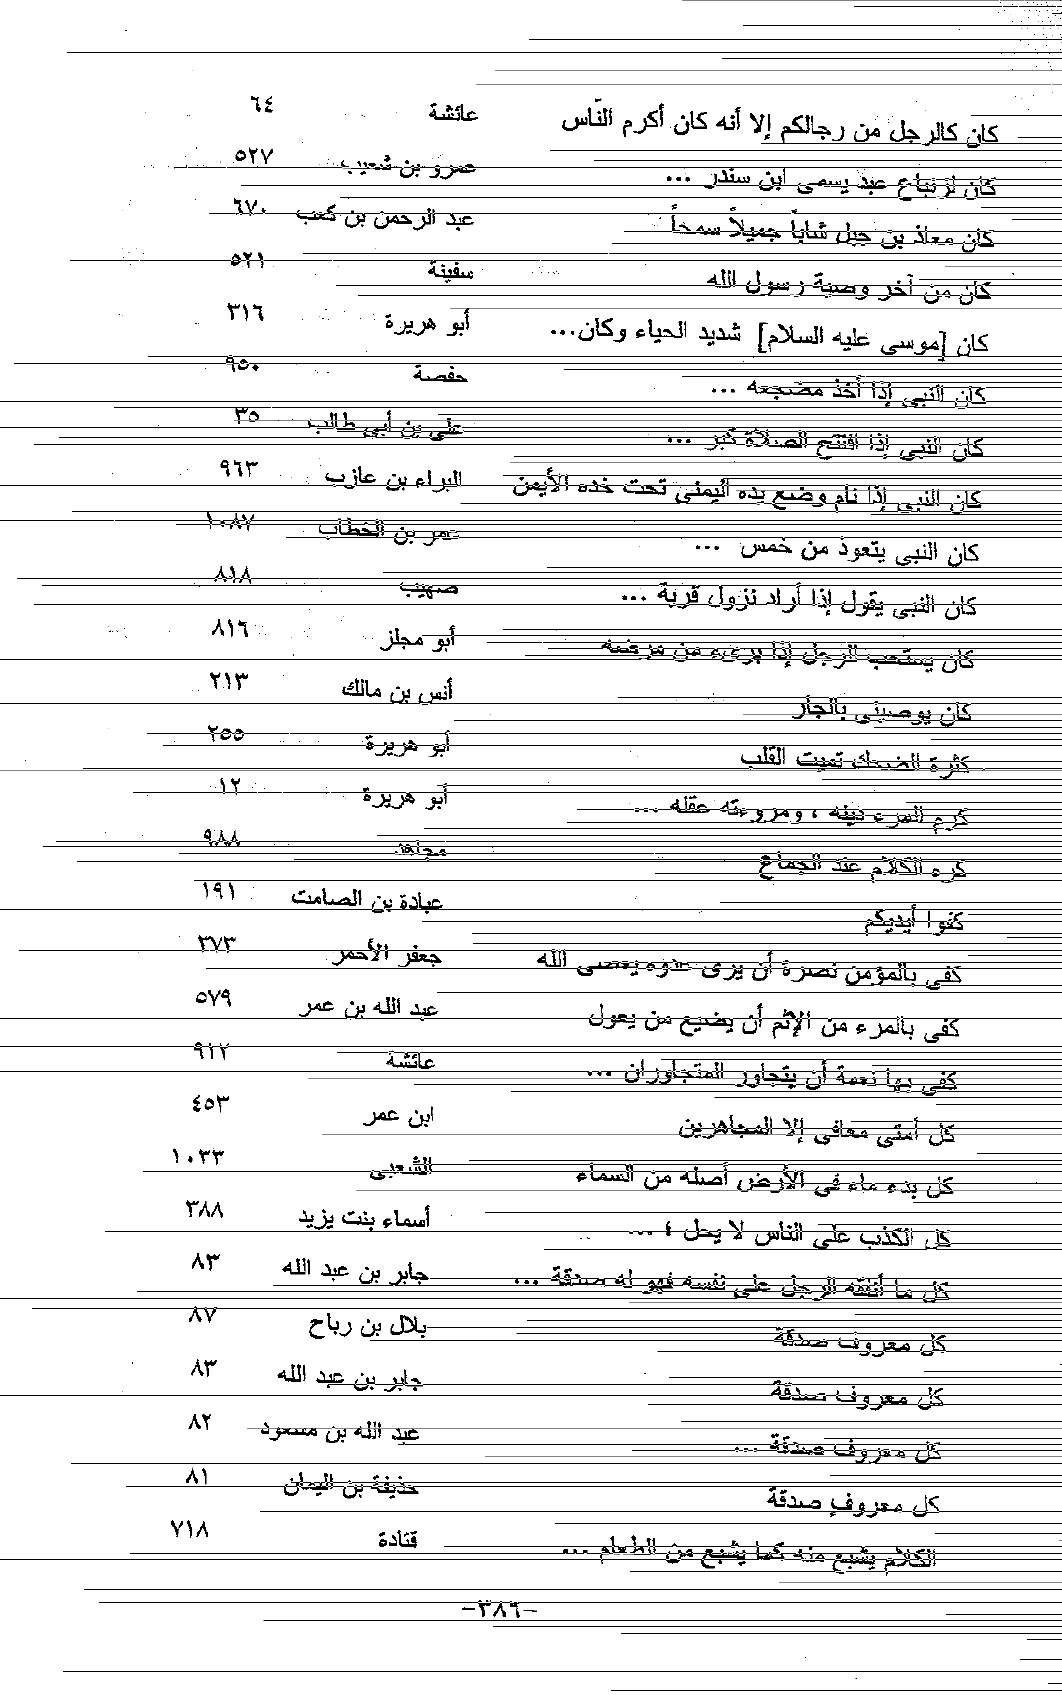 كان كالرجل من رجالكم إلا أنه كان أكرم النّاس عائشة ٦٤
كان لزنباع عبد يسمى ابن سندر ... عمرو بن شعيب ٥٢٧
كان معاذ بن جبل شاباً جميلاً سمحاً عبد الرحمن بن كعب ٦٧٠
كان من آخر وصية رسول الله سفينة ٥٢١
كان [موسى عليه السلام] شديد الحياء وكان... أبو هريرة ٣١٦
كان النبى إذا أخذ مضجعه ... حفصة ٩٥٠
كان النبى إذا افتتح الصلاة كبر ... على بن أبي طالب ٣٥
كان النبى إذا نام وضع يده اليمنى تحت خده الأيمن البراء بن عازب ٩٦٣
كان النبى يتعوذ من خمس ... عمر بن الخطاب ١٠٨٧
كان النبى يقول إذا أراد نزول قرية ... صهيب ٨١٨
كان يستحب للرجل إذا برىء من مرضه أبو مجلز ٨١٦
كان يوصينى بالجار أنس بن مالك ٢١٣
كثرة الضحك تميت القلب أبو هريرة ٢٥٥
كرم المرء دينه ، ومروءته عقله ... أبو هريرة ١٢
كره الكلام عند الجماع مجاهد ٩٨٨
كفوا أيديكم عبادة بن الصامت ١٩١
كفى بالمؤمن نصرة أن يرى عدوه يعصى الله جعفر الأحمر ٣٧٣
كفى بالمرء من الإثم أن يضيع من يعول عبد الله بن عمر ٥٧٩
كفى بها نعمة أن يتجاور المتجاوران ... عائشة ٩١٢
كل أمتى معافى إلا المجاهرين ابن عمر ٤٥٣
كل بدء ماء فى الأرض أصله من السماء الشعبى ١٠٣٣
كل الكذب على الناس لا يحل ؛ ... أسماء بنت يزيد ٣٨٨
كل ما أنفقه الرجل على نفسه فهو له صدقة ... جابر بن عبد الله ٨٣
كل معروف صدقة بلال بن رباح ٨٧
كل معروف صدقة جابر بن عبد الله ٨٣
كل معروف صدقة ... عبد الله بن مسعود ٨٢
كل معروف صدقة حذيفة بن اليمان ٨١
الكلام يشبع منه كما يشبع من الطعام ... قتادة ٧١٨
-٣٨٦-